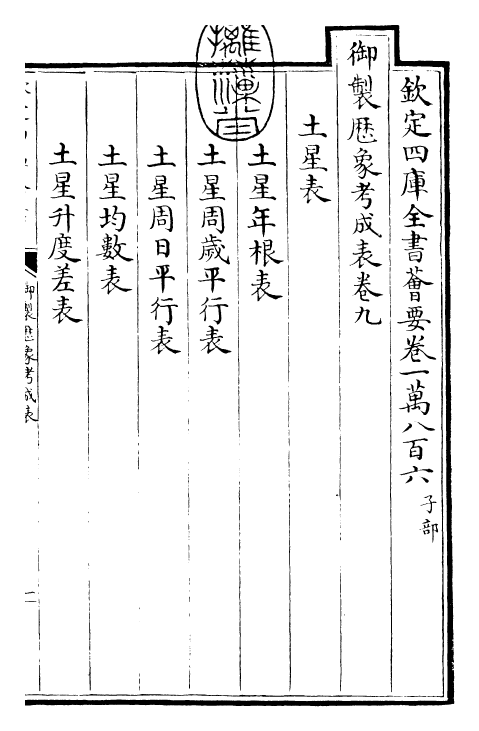 欽定四庫全書薈要卷一萬八百六 子部
御製歷象考成表卷九
土星表
土星年根表
土星周歲平行表
土星周日平行表
土星均數表
土星升度差表
御製歷象考成表